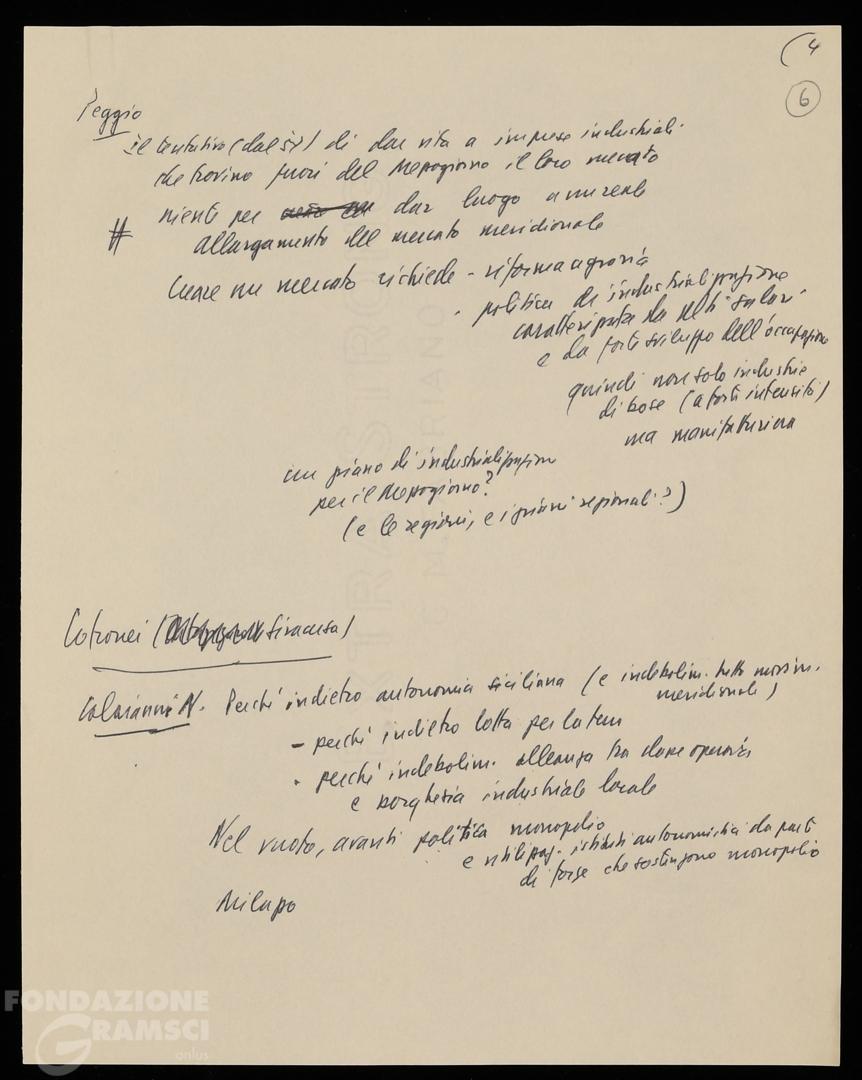 (4
6
Peggio
il tentativo (dal '57) di dar vita a imprese industriali
che trovino fuori del Mezzogiorno il loro mercato
# niente per dar luogo a un reale
allargamento del mercato meridionale
Creare un mercato richiede - riforma agraria
- politica di industrializzazione
caratterizzata da alti salari
e da forte sviluppo dell'occupazione
quindi non solo industrie
di base (a forte intensità)
ma manifatturiera
un piano di industrializzazione
per il Mezzogiorno?
(e le regioni, e i piani regionali?)
Cotronei ( Siracusa)
Colaianni N. Perché indietro autonomia siciliana (e indebolim. tutto movim.
meridionale)
- perché indietro lotta per la terra
- perché indebolim. alleanza tra classe operaia
e borghesia industriale locale
Nel vuoto, avanti politica monopolio
e utilizzaz. istituti autonomistici da parte
di forze che sostengono monopolio
Milazzo
FONDAZIONE
GRAMSCI
onlus